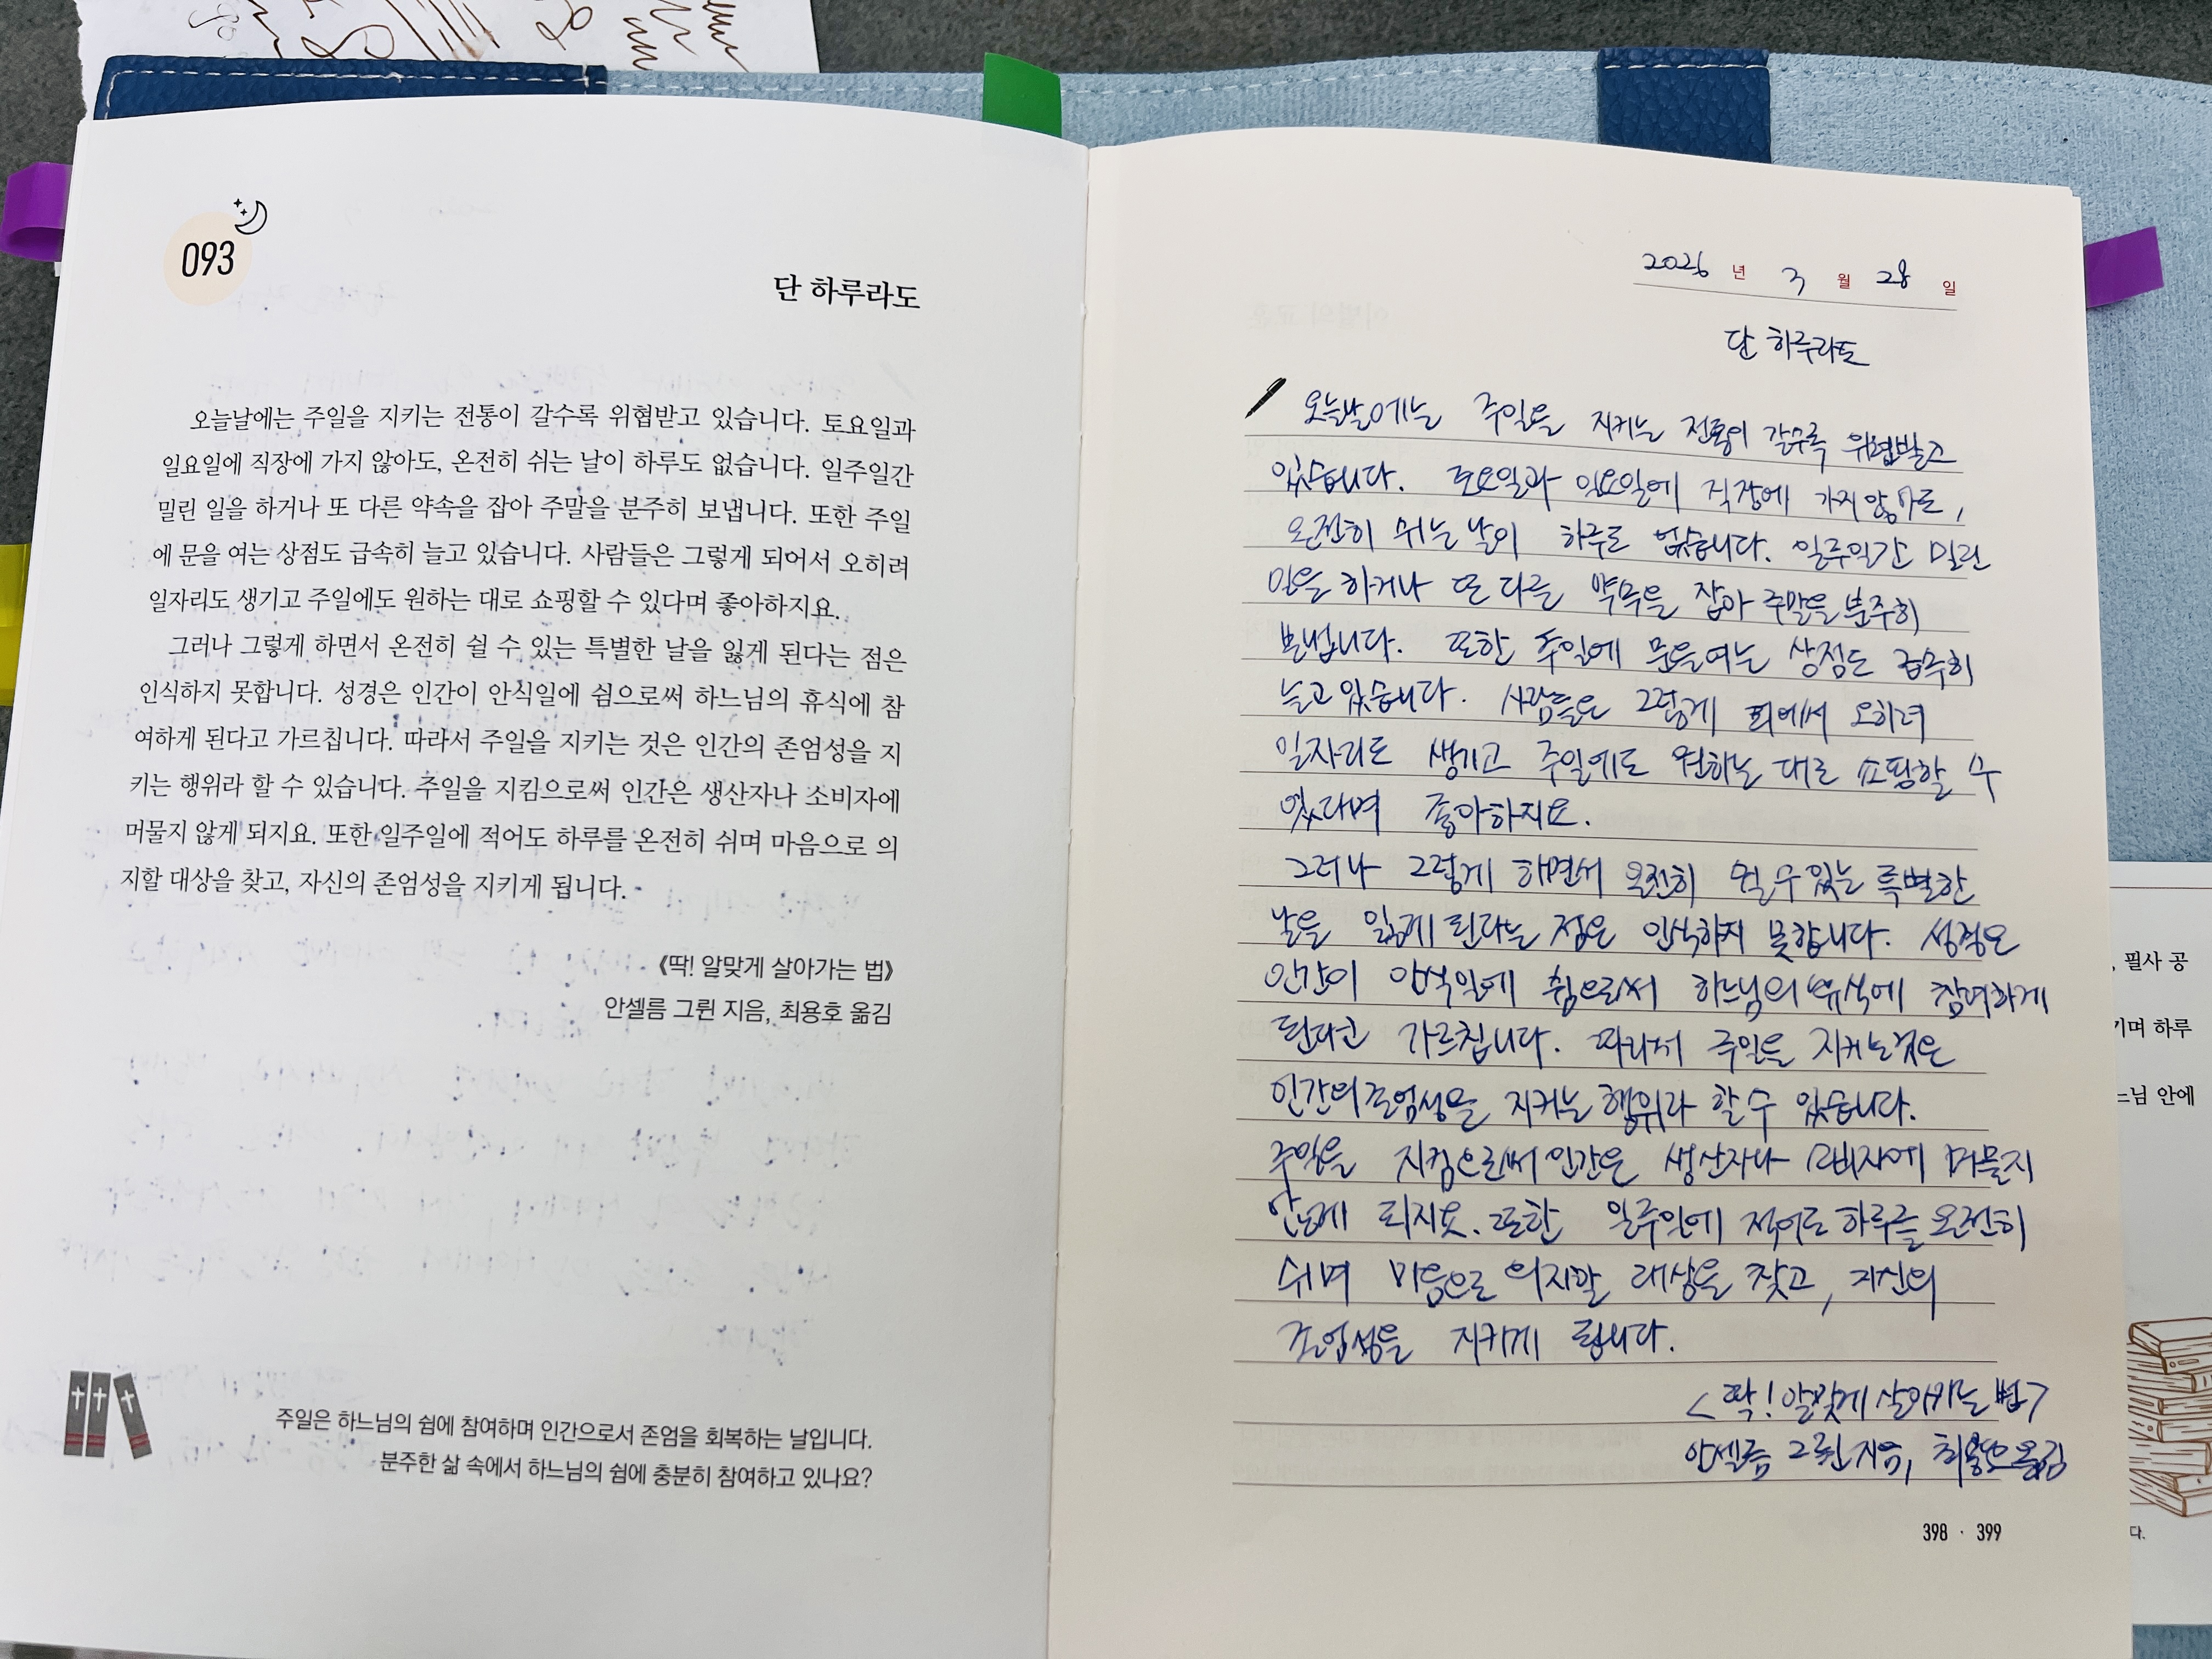 093
단 하루라도
오늘날에는 주일을 지키는 전통이 갈수록 위협받고 있습니다. 토요일과
일요일에 직장에 가지 않아도, 온전히 쉬는 날이 하루도 없습니다. 일주일간
밀린 일을 하거나 또 다른 약속을 잡아 주말을 분주히 보냅니다. 또한 주일
에 문을 여는 상점도 급속히 늘고 있습니다. 사람들은 그렇게 되어서 오히려
일자리도 생기고 주일에도 원하는 대로 쇼핑할 수 있다며 좋아하지요.
그러나 그렇게 하면서 온전히 쉴 수 있는 특별한 날을 잃게 된다는 점은
인식하지 못합니다. 성경은 인간이 안식일에 쉼으로써 하느님의 휴식에 참
여하게 된다고 가르칩니다. 따라서 주일을 지키는 것은 인간의 존엄성을 지
키는 행위라 할 수 있습니다. 주일을 지킴으로써 인간은 생산자나 소비자에
머물지 않게 되지요. 또한 일주일에 적어도 하루를 온전히 쉬며 마음으로 의
지할 대상을 찾고, 자신의 존엄성을 지키게 됩니다.
《딱! 알맞게 살아가는 법》
안셀름 그륀 지음, 최용호 옮김
주일은 하느님의 쉼에 참여하며 인간으로서 존엄을 회복하는 날입니다.
분주한 삶 속에서 하느님의 쉼에 충분히 참여하고 있나요?
2026 년 3 월 28 일
단 하루라도
오늘날에는 주일을 지키는 전통이 갈수록 위협받고
있습니다. 토요일과 일요일에 직장에 가지 않아도,
온전히 쉬는 날이 하루도 없습니다. 일주일간 밀린
일을 하거나 또 다른 약속을 잡아 주말을 분주히
보냅니다. 또한 주일에 문을 여는 상점도 급속히
늘고 있습니다. 사람들은 그렇게 되어서 오히려
일자리도 생기고 주일에도 원하는 대로 쇼핑할 수
있다며 좋아하지요.
그러나 그렇게 하면서 온전히 쉴 수 있는 특별한
날을 잃게 된다는 점은 인식하지 못합니다. 성경은
인간이 안식일에 쉼으로써 하느님의 휴식에 참여하게
된다고 가르칩니다. 따라서 주일을 지키는 것은
인간의 존엄성을 지키는 행위라 할 수 있습니다.
주일을 지킴으로써 인간은 생산자나 소비자에 머물지
않게 되지요. 또한 일주일에 적어도 하루를 온전히
쉬며 마음으로 의지할 대상을 찾고, 자신의
존엄성을 지키게 됩니다.
<딱! 알맞게 살아가는 법>
안셀름 그륀 지음, 최용호 옮김
398 · 399
, 필사 공
기며 하루
느님 안에
다.